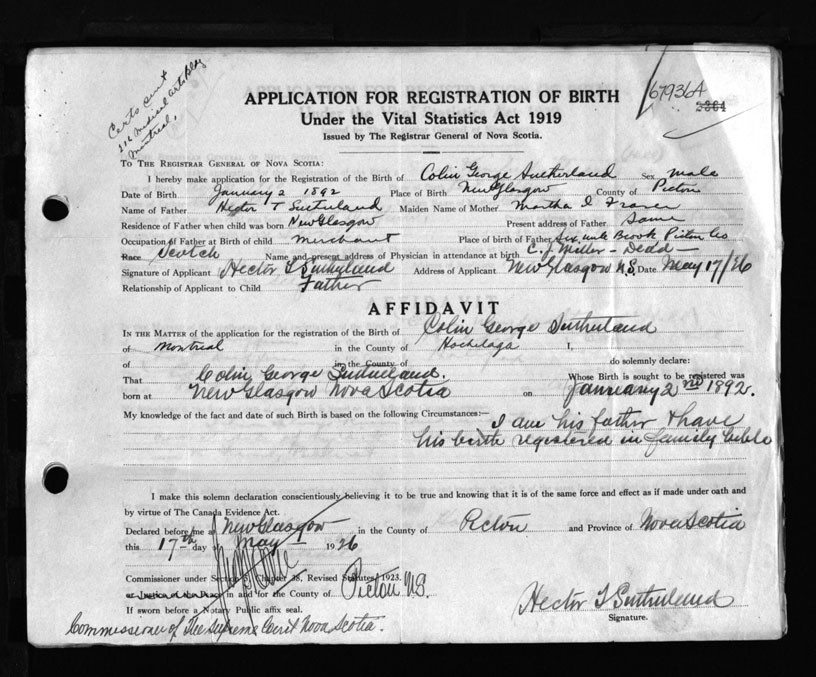 Certs sent
216 Medical Arts Bldg
Montreal.
67936A
2364
APPLICATION FOR REGISTRATION OF BIRTH
Under the Vital Statistics Act 1919
Issued by The Registrar General of Nova Scotia.
TO THE REGISTRAR GENERAL OF NOVA SCOTIA:
I hereby make application for the Registration of the Birth of Colin George Sutherland Sex male
Date of Birth January 2 1892 Place of Birth New Glasgow County of Pictou
Name of Father Hector T Sutherland Maiden Name of Mother Martha I Fraser
Residence of Father when child was born New Glasgow Present address of Father Same
Occupation of Father at Birth of child merchant Place of birth of Father Six mile Brook Pictou Co
Race Scotch Name and present address of Physician in attendance at birth C. J. Miller - Dead -
Signature of Applicant Hector T Sutherland Address of Applicant New Glasgow N.S. Date May 17/26
Relationship of Applicant to Child Father
AFFIDAVIT
IN THE MATTER of the application for the registration of the Birth of Colin George Sutherland
of Montreal in the County of Hochelaga I,
of in the County of do solemnly declare:
That Colin George Sutherland. Whose Birth is sought to be registered was
born at New Glasgow Nova Scotia on January 2nd 1892.
My knowledge of the fact and date of such Birth is based on the following Circumstances:—
I am his father & have
his birth registered in family bible
I make this solemn declaration conscientiously believing it to be true and knowing that it is of the same force and effect as if made under oath and
by virtue of The Canada Evidence Act.
Declared before me at New Glasgow in the County of Pictou and Province of Nova Scotia
this 17th day of May 1926
Commissioner under Section 5, Chapter 38, Revised Statutes, 1923.
or Justice of the Peace in and for the County of Pictou N.S.
If sworn before a Notary Public affix seal.
Hector T Sutherland
Signature.
Commissioner of The Supreme Court Nova Scotia.